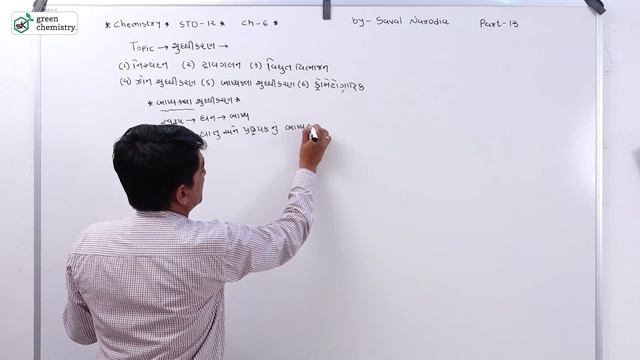 green
chemistry.
* Chemistry * STD-12 Ch-6 * by- Saval Narodia Part-13
Topic → શુદ્ધીકરણ →
(1) નિસ્યંદન (2) દ્રાવગલન (3) વિદ્યુત વિભાજન
(4) ઝોન શુદ્ધીકરણ (5) બાષ્પકલા શુદ્ધીકરણ (6) ક્રોમેટોગ્રાફિક
* બાષ્પકલા શુદ્ધીકરણ *
→ ઘન → બાષ્પ
ધાતુ અને પ્રક્રિયકનું